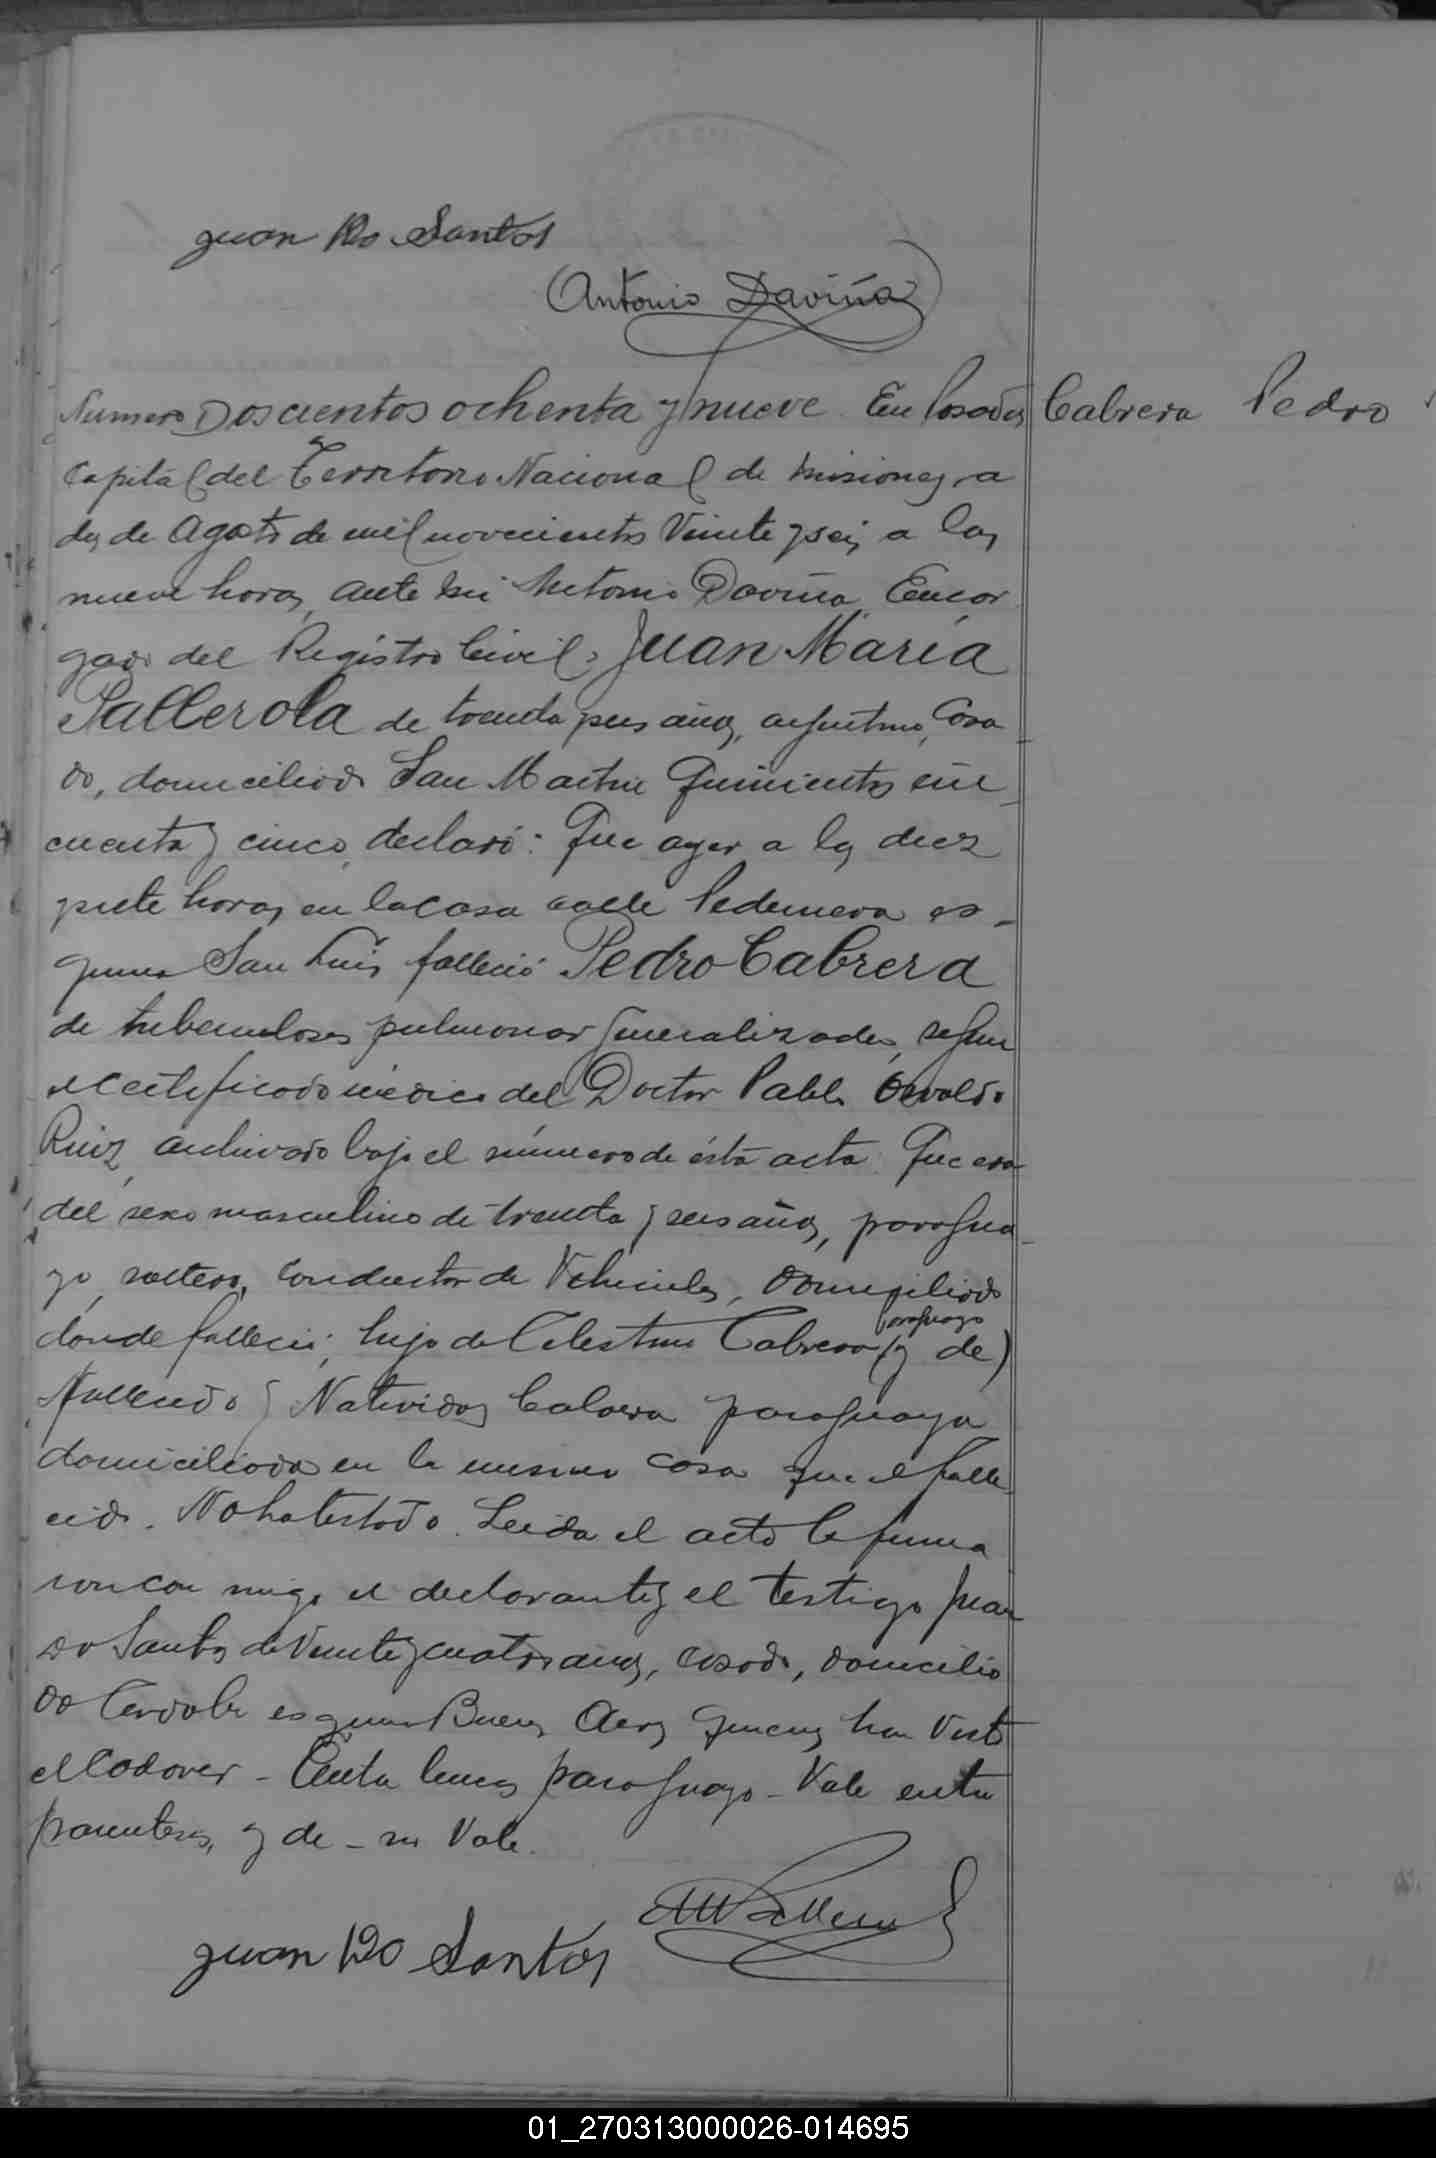 Juan Do Santos
Antonio Daviña
Numero Doscientos ochenta y nueve En Posadas
Cabrera Pedro
Capital del Territorio Nacional de Misiones, a
dos de Agosto de mil novecientos Veinte y seis a las
nueve horas, ante mi Antonio Daviña, Encar
gado del Registro Civil, Juan María
Pallerola de treinta y seis años, argentino, Casa
do, domiciliado San Martin Quinientos cin
cuenta y cinco, declaró: Que ayer a las diez
y siete horas en la casa calle Pedernera es-
quina San Luis falleció Pedro Cabrera
de tuberculosis pulmonar generalizada, segun
el certificado médico del Doctor Pablo Osvaldo
Ruiz, archivado bajo el número de ésta acta. Que era
del sexo masculino de treinta y seis años, paragua-
yo, soltero, Conductor de Vehiculos, domiciliado
paraguayo
donde falleció; hijo de Celestino Cabrera (y de)
fallecido y Natividad Cabrera paraguaya
domiciliada en la misma casa que el falle
cido. No ha testado. Leida el acta la firma
ron con migo el declarante y el testigo Juan
Do Santos de Veinte y cuatro años, casado, domicilia
do Cordoba esquina Buenos Aires quienes han Visto
el Cadaver - Entre lineas paraguayo - Vale entre
parentesis, y de - no Vale.
Juan Do Santos